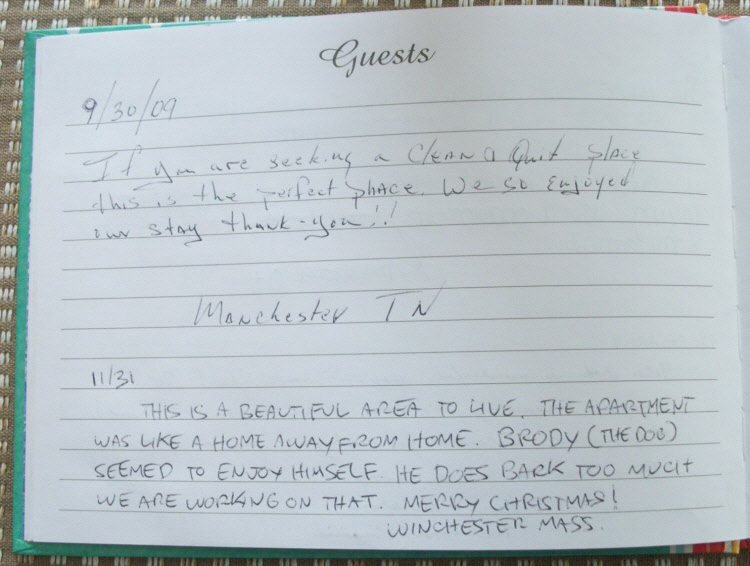 Guests
9/30/09
If you are seeking a Clean & Quit place
this is the perfect place. We so Enjoyed
our stay thank-you!!
Manchester TN
11/31
THIS IS A BEAUTIFUL AREA TO LIVE. THE APARTMENT
WAS LIKE A HOME AWAY FROM HOME. BRODY (THE DOG)
SEEMED TO ENJOY HIMSELF. HE DOES BARK TOO MUCH
WE ARE WORKING ON THAT. MERRY CHRISTMAS!
WINCHESTER MASS.